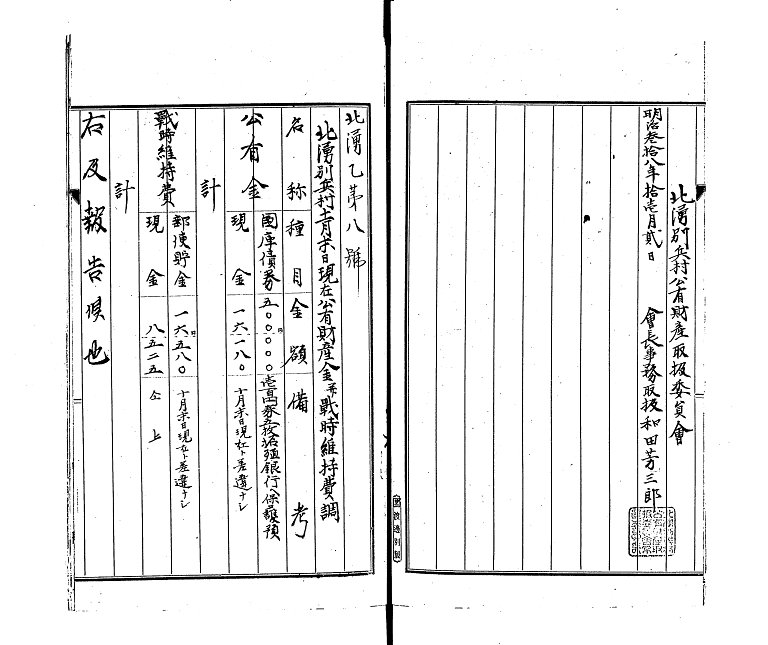 北湧別兵村公有財産取扱委員會
明治参拾八年拾壱月貳日 會長事務取扱和田芳三郎
北湧乙第八號
北湧別兵村十月末日現在公有財産金並戰時維持費調
名稱 種目 金額 備考
公有金 國庫債券 五〇〇〇〇〇 壱百円券五枚拓殖銀行ヘ保護預
現金 一六一八〇 十月末日現在ト差違ナシ
計
戰時維持費 郵便貯金 一六五八〇 十月末日現在ト差違ナシ
現金 八五二五 仝上
計
右及報告候也